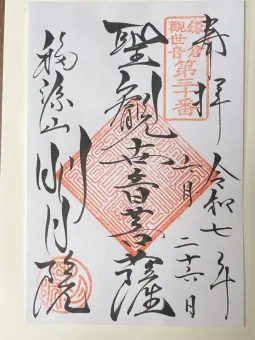 奉拜
鎌倉
觀世音
第三十番
令和七年
六月
二十六日
聖觀世音菩薩
福源山
明月院